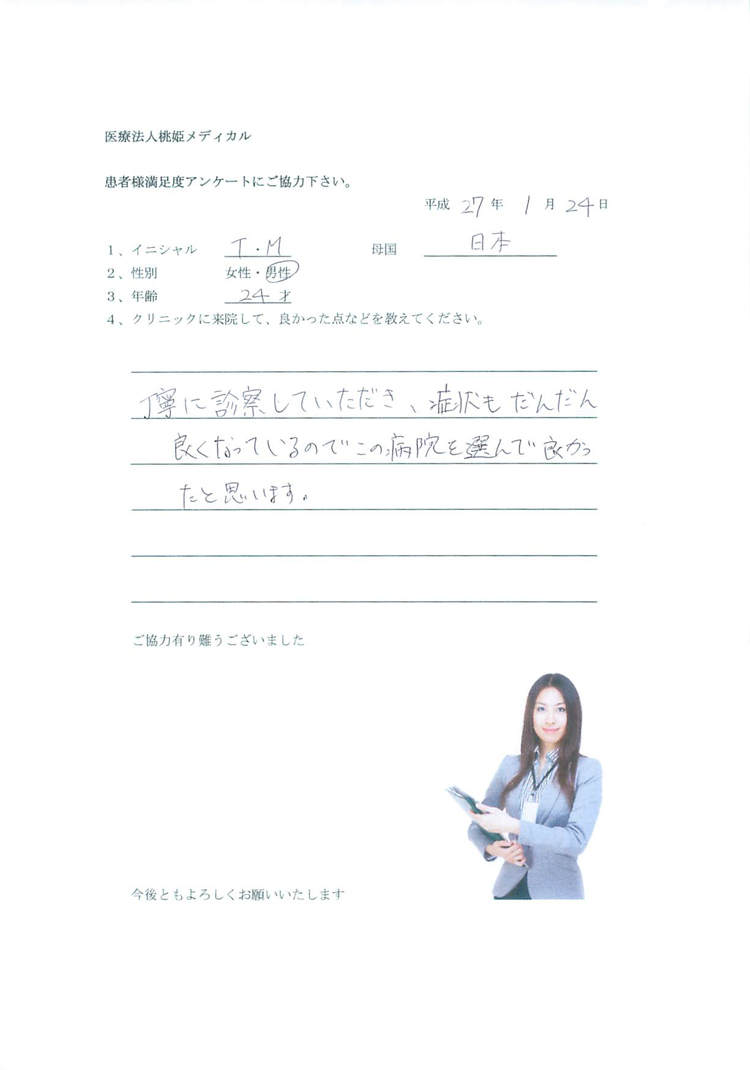 医療法人桃姫メディカル
患者様満足度アンケートにご協力下さい。
平成 27 年 1 月 24 日
1、イニシャル T・M 母国 日本
2、性別 女性・男性
3、年齢 24才
4、クリニックに来院して、良かった点などを教えてください。
丁寧に診察していただき、症状もだんだん
良くなっているのでこの病院を選んで良かっ
たと思います。
ご協力有り難うございました
今後ともよろしくお願いいたします